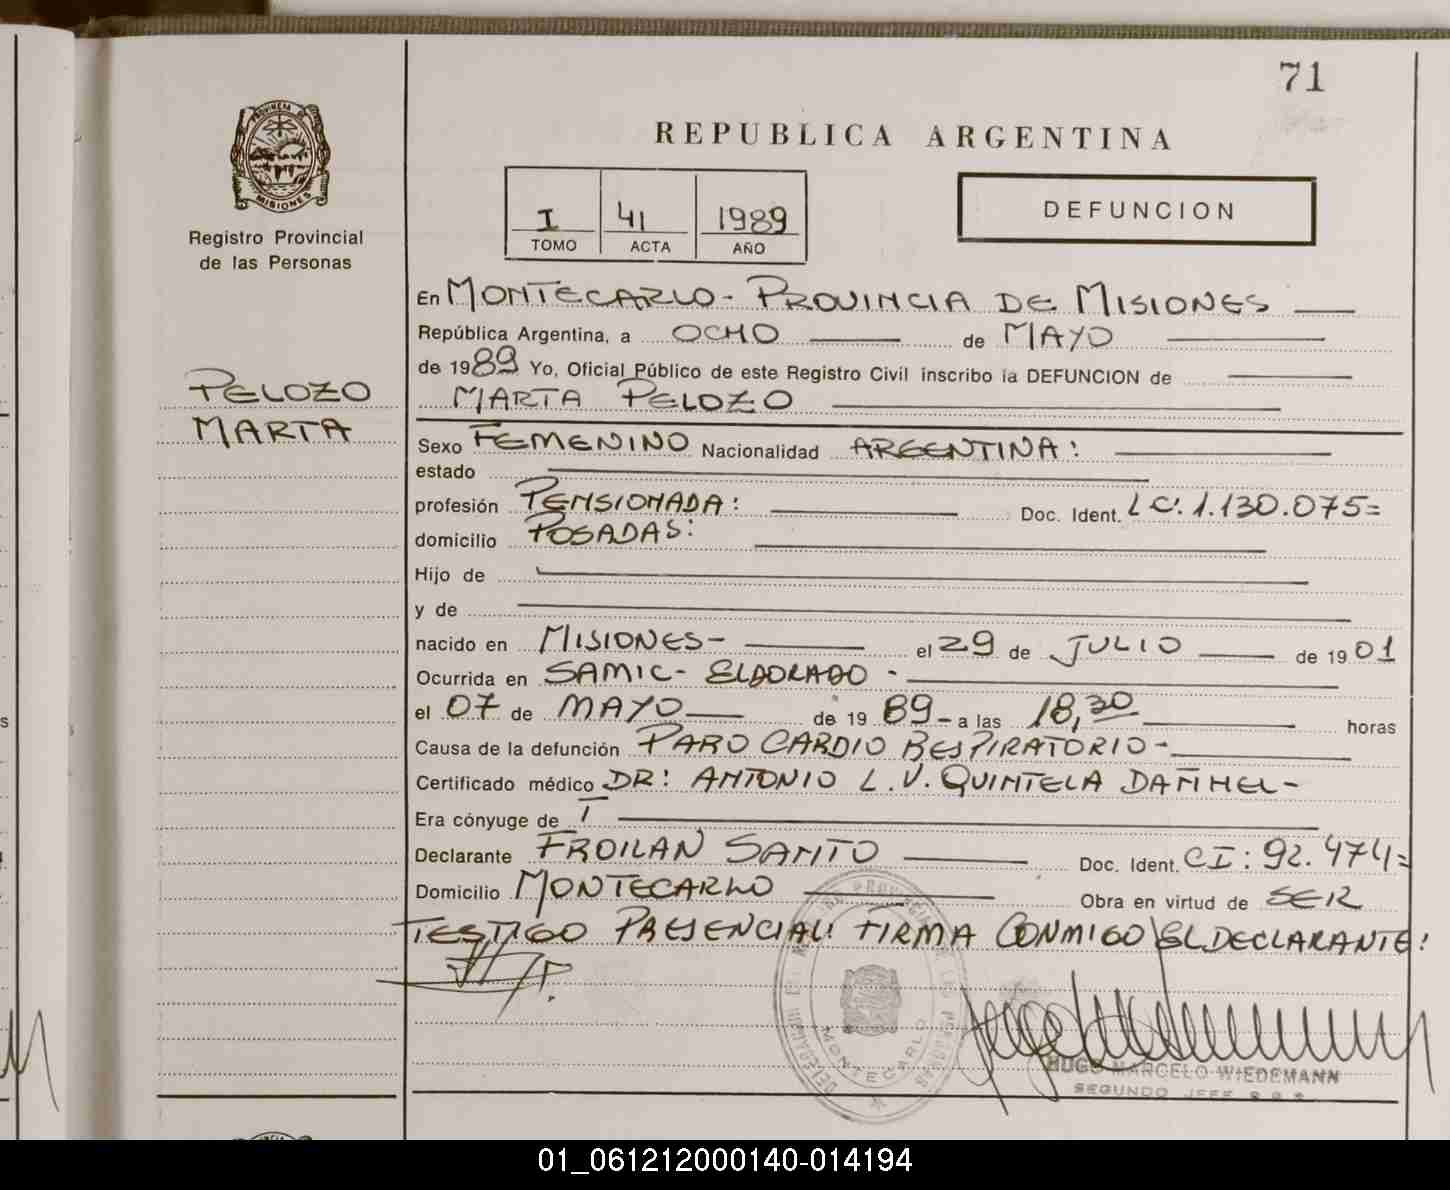 71
PROVINCIA DE
MISIONES
Registro Provincial
de las Personas
REPUBLICA ARGENTINA
I 41 1989
TOMO ACTA AÑO
DEFUNCION
PELOZO
MARTA
En MONTECARLO - PROVINCIA DE MISIONES
República Argentina, a OCHO de MAYO
de 1989 Yo, Oficial Público de este Registro Civil inscribo la DEFUNCION de
MARTA PELOZO
Sexo FEMENINO Nacionalidad ARGENTINA:
estado
profesión PENSIONADA: Doc. Ident. LC: 1.130.075=
domicilio POSADAS:
Hijo de
y de
nacido en MISIONES- el 29 de JULIO de 1901
Ocurrida en SAMIC- ELDORADO -
el 07 de MAYO de 1989 - a las 18,30 horas
Causa de la defunción PARO CARDIO RESPIRATORIO -
Certificado médico DR: ANTONIO L.V. QUINTELA
Era cónyuge de
Declarante FROILAN SANTO Doc. Ident. CI: 92.474=
Domicilio MONTECARLO Obra en virtud de SER
TESTIGO PRESENCIAL: FIRMA CONMIGO EL DECLARANTE:
MONTECARLO
HUGO MARCELO WIEDEMANN
SEGUNDO JEFE
01_061212000140-014194